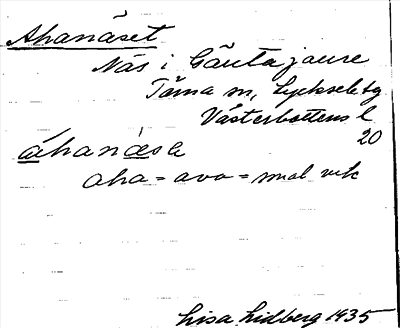 Ahanäset
Näs i Gäutajaure
Tärna sn, Lycksele tg
Västerbottens l
20
áhanásĕ
aha = ava = smal vik
Lisa Lidberg 1935